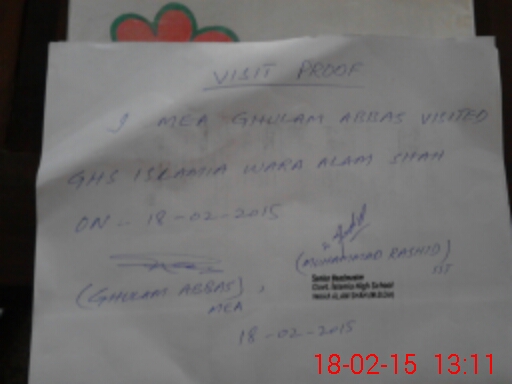 VISIT PROOF
I MEA GHULAM ABBAS VISITED
GHS ISLAMIA WARA ALAM SHAH
ON-- 18-02-2015
(GHULAM ABBAS),
MEA
(MUHAMMAD RASHID)
SST
Senior Headmaster
Govt. Islamia High School
18-02-2015
18-02-15 13:11